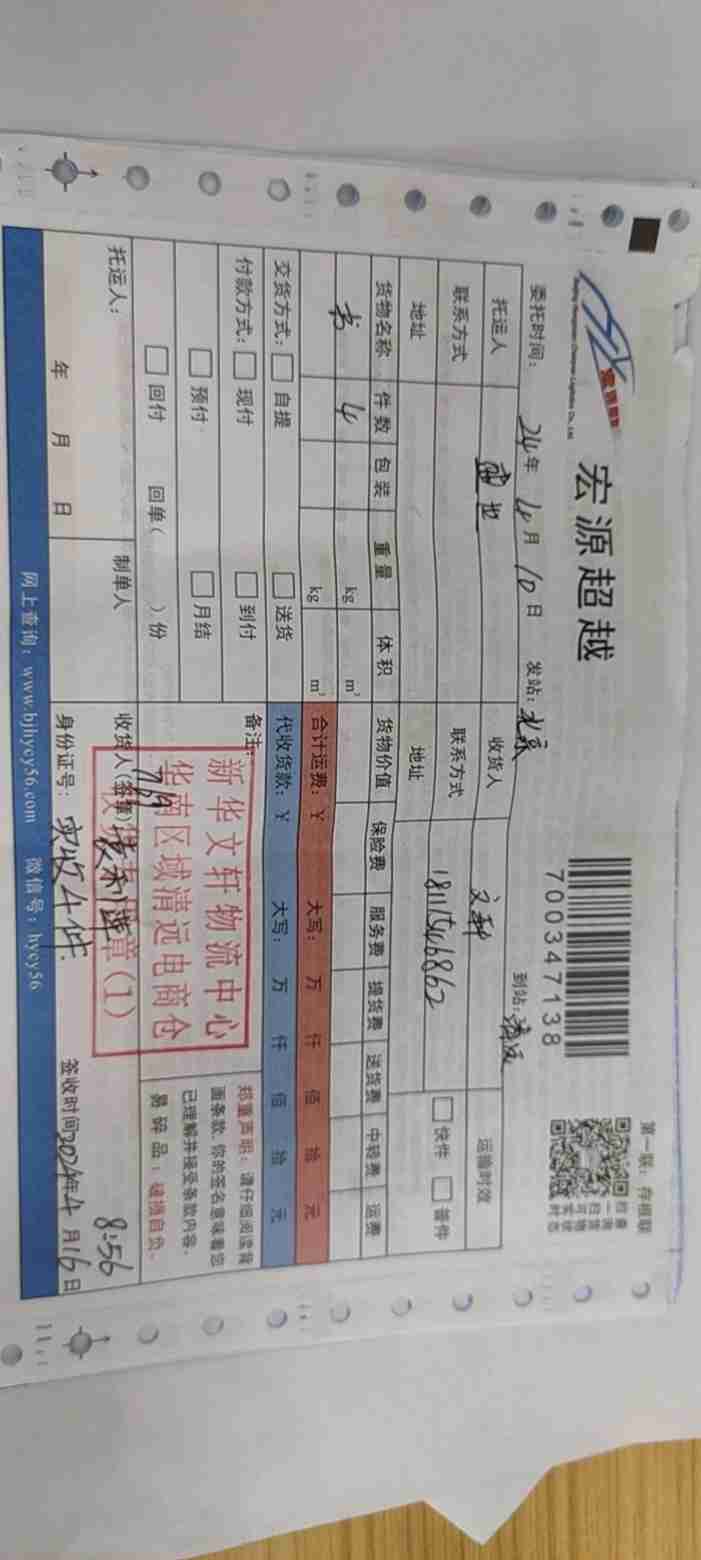 宏源超越
700347138
第一联：存根联
委托时间： 24年 4月 10日 发站：北京 到站：清远
托运人 收货人 文轩 运输时效
联系方式 联系方式 18115416862 快件 普件
地址 地址
货物名称 件数 包装 重量 体积 货物价值 保险费 服务费 提货费 送货费 中转费 运费
书 4 kg m³
kg m³ 合计运费：¥ 大写： 万 仟 佰 拾 元
交货方式： 自提 送货 代收货款：¥ 大写： 万 仟 佰 拾 元
付款方式： 现付 到付 备注：
预付 月结
回付 回单（ ）份
新华文轩物流中心
华南区域清远电商仓
章(1)
郑重声明：请仔细阅读背
面条款，你的签名意味着您
已理解并接受条款内容。
易碎品：破损自负。
托运人： 制单人 收货人(签章)
769
8:56
年 月 日 身份证号： 实收4件. 签收时间2024年4月16日
网上查询：www.bjhycy56.com 微信号：hycy56